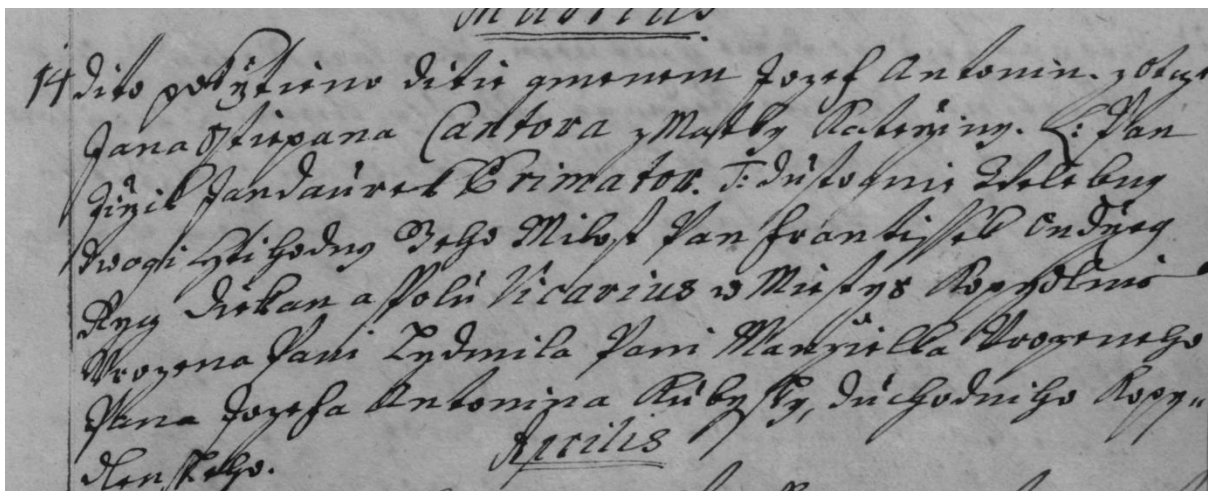 Martius
14 dito pokřtieno ditie gmenem Jozef Antonin. z Otcze
Jana Sstiepana Cantora z Matky Kateřiny. L: Pan
Jiřik Jandaurek Primator. T: dustogmie Welebny
dwogi cti hodny Geho Milost Pan Frantissek Ondřeg
diekan a spolu Vicarius w Miestys Kopydlnie
Urozena Pani Lydmila Pani Manzielka Urozeneho
Pana Jozefa Antonina Kubysky, duchodniho Kopy„
dlenskeho.
Aprilis